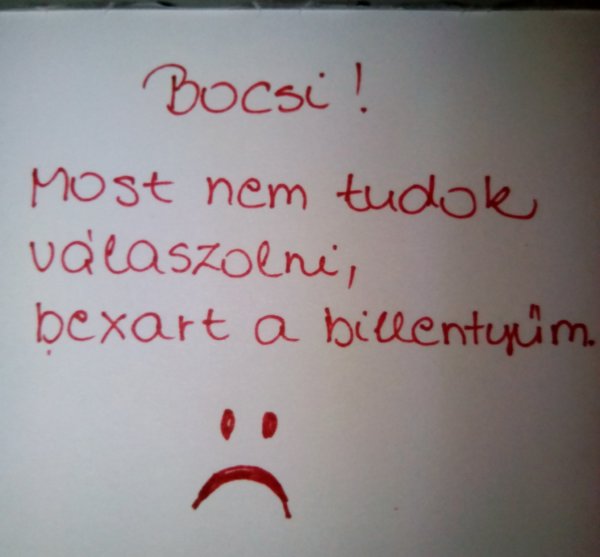 Bocsi!
Most nem tudok
válaszolni,
bexart a billentyűm.